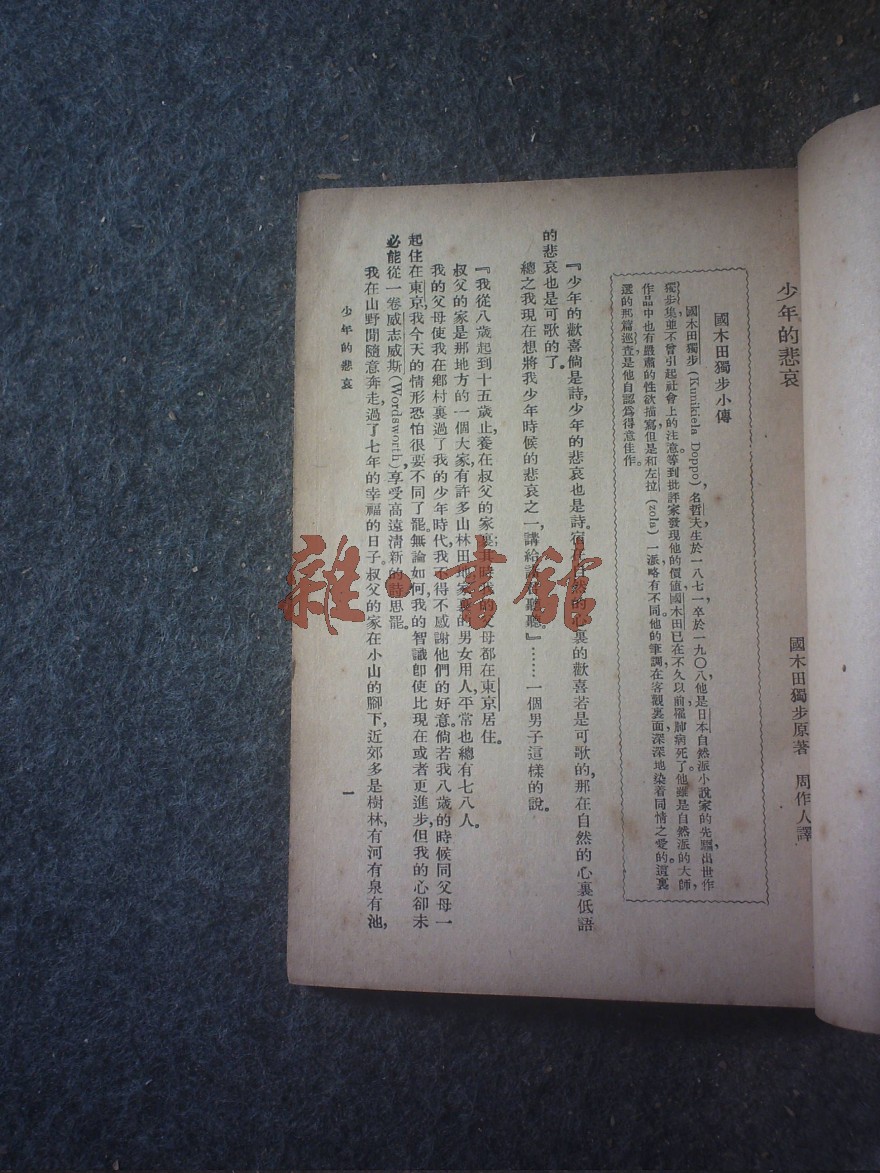 少年的悲哀
國木田獨步原著　周作人譯
國木田獨步小傳
國木田獨步(Kunikiela Doppo),名哲夫,生於一八七一,卒於一九〇八,他是日本自然派小說家的先驅,出世作
獨步集,並不曾引起社會上的注意。等到批評家發現他的價值,國木田已在不久以前罹肺病死了。他雖是自然派的大師,
作品中也有嚴肅的性欲描寫,但是和左拉(zola)一派略有不同。他的筆調在客觀裏面,深深地染着同情之愛的。這裏
選的那篇巡查,是他自認爲得意佳作。
『少年的歡喜倘是詩,少年的悲哀也是詩。宿在自然的心裏的歡喜若是可歌的,那在自然的心裏低語
的悲哀也是可歌的了。
總之我現在想將我少年時候的悲哀之一,講給諸君聽聽。』……一個男子這樣的說。
『我從八歲起到十五歲止,養在叔父的家裏;其時我的父母都在東京居住。
叔父的家是那地方的一個大家,有許多山林田地,家裏的男女用人,平常也總有七八人。
我的父母使我在鄉村裏過了我的少年時代,我不得不感謝他們的好意。倘若我八歲的時候同父母一
起住在東京,我今天的情形恐怕很要不同了罷。無論如何,我的智識卽使比現在或者更進步,但我的心卻未
必能從一卷威志威斯(Wordsworth),享受高遠淸新的詩思罷。
我在山野間隨意奔走,過了七年的幸福的日子。叔父的家在小山的腳下,近郊多是樹林,有河有泉有池,
少年的悲哀
一
雜·書館